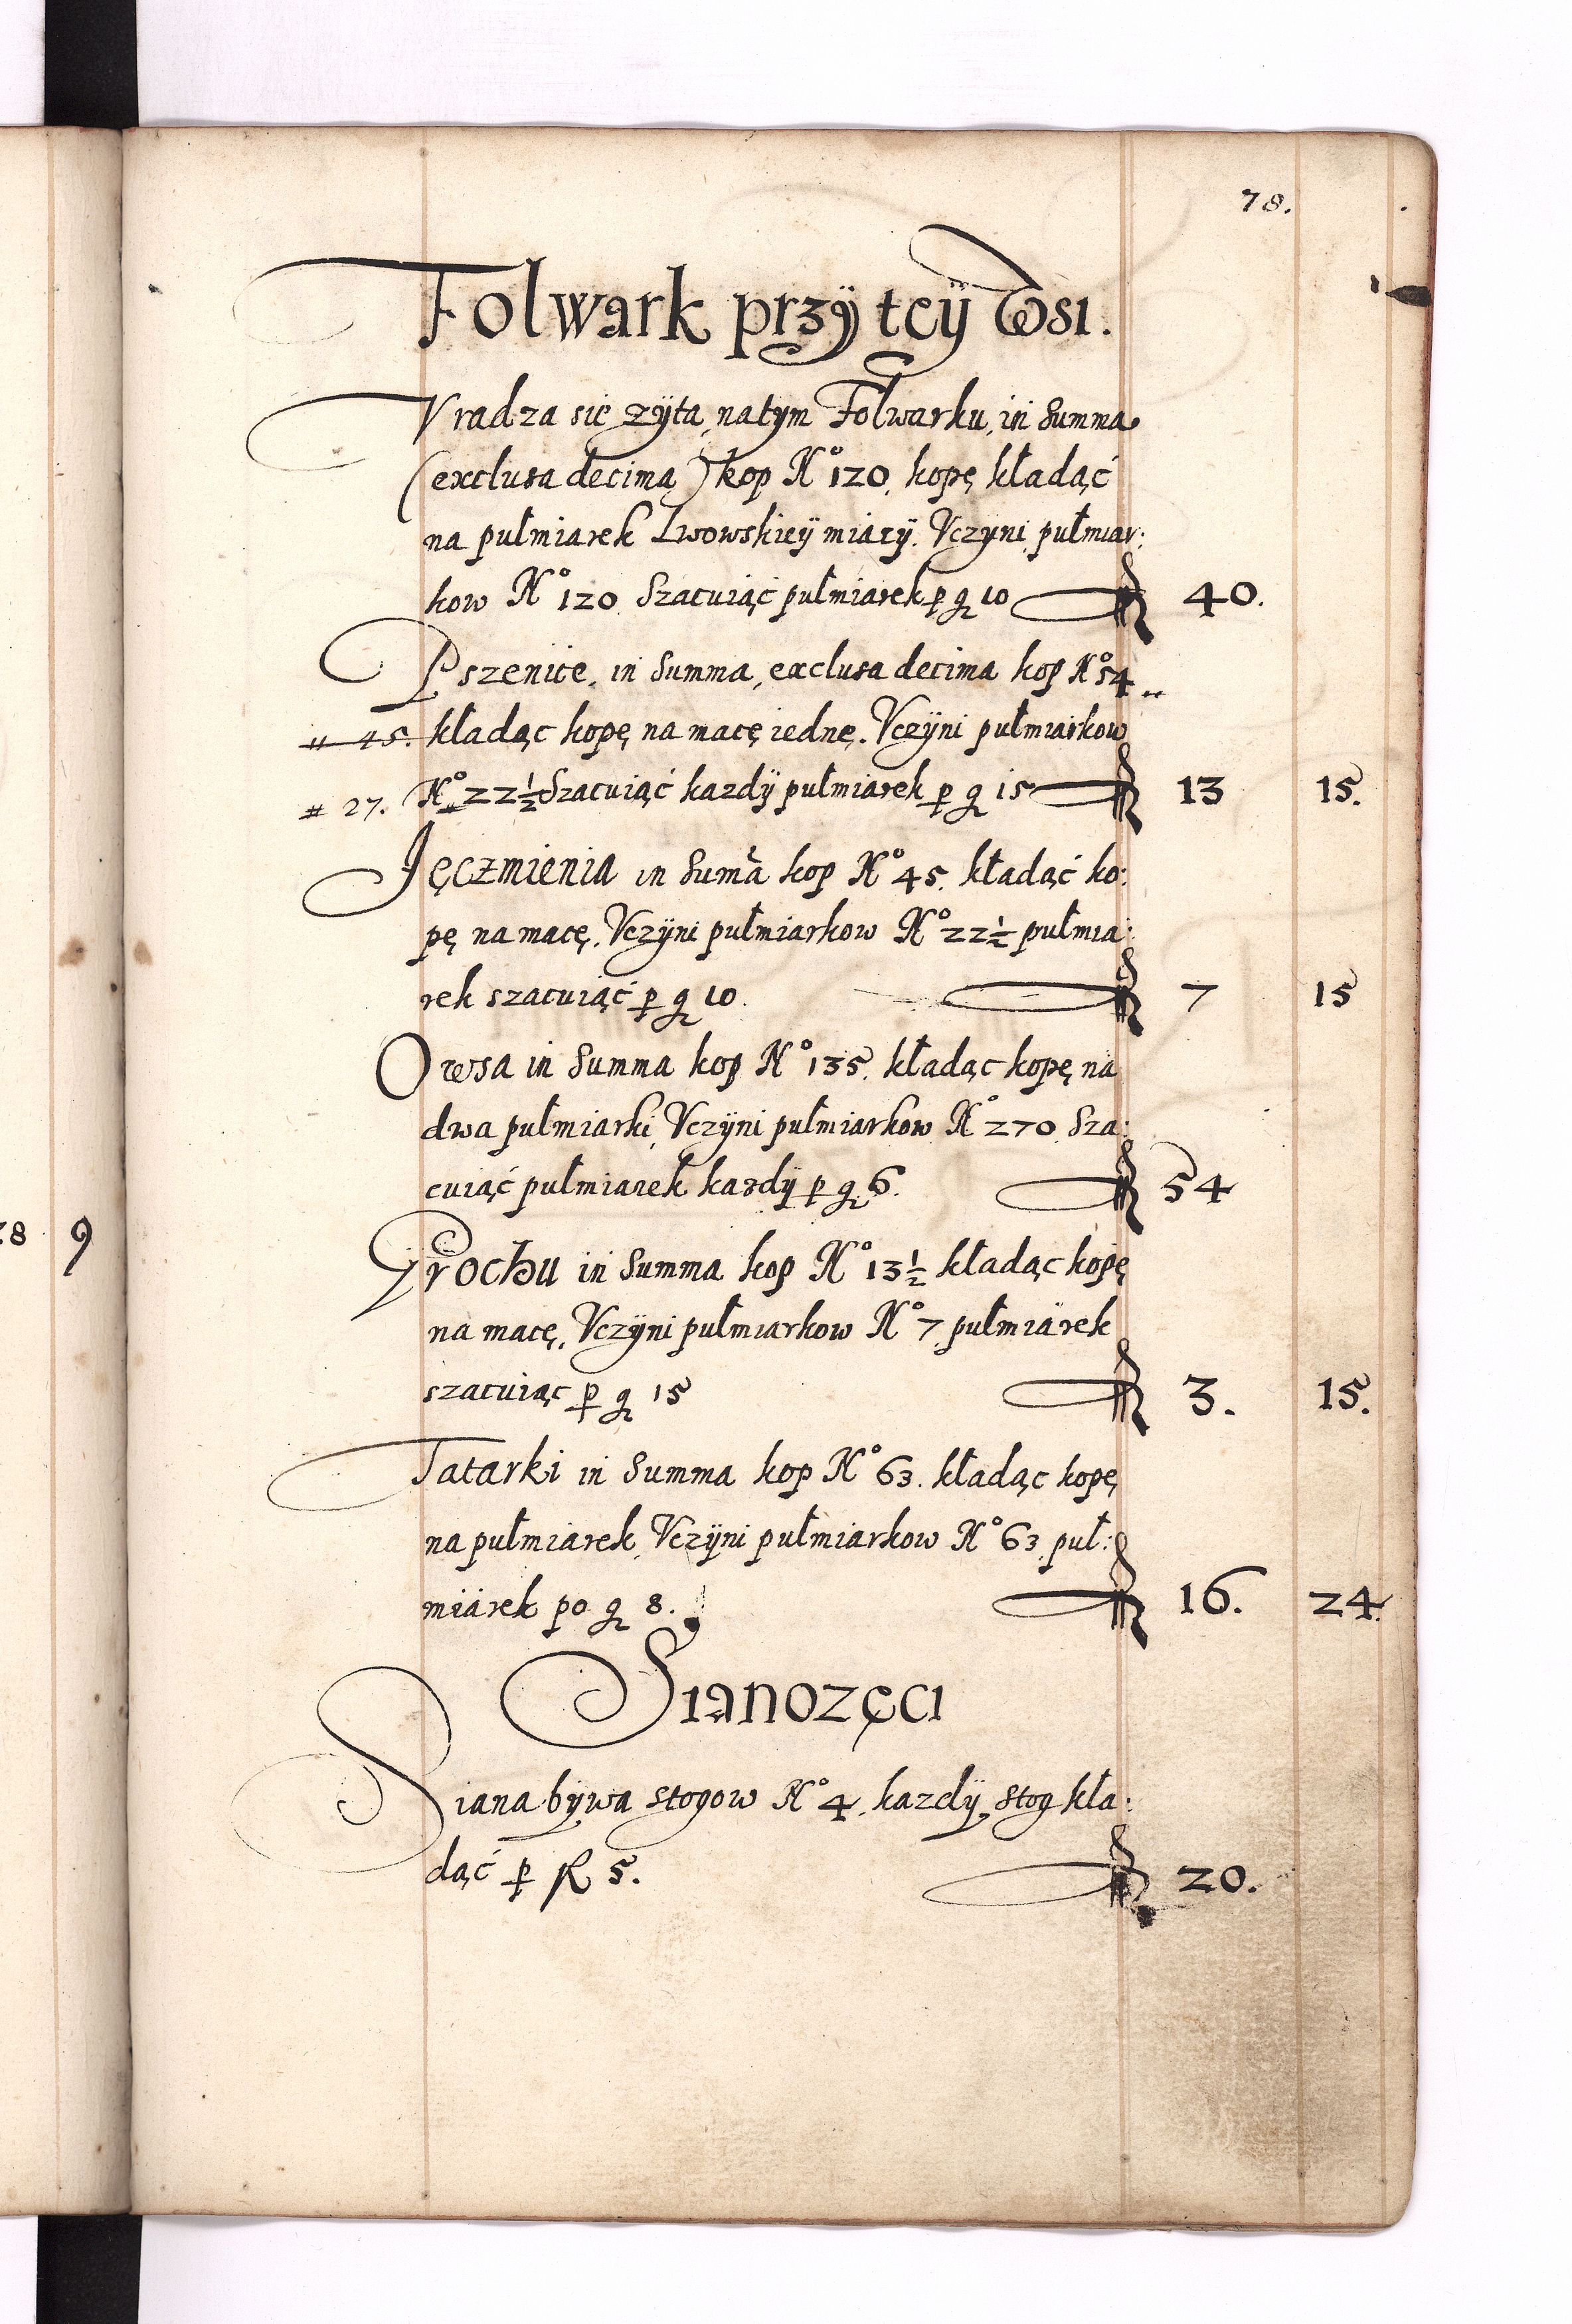 78.
Folwark przÿ teÿ wsi.
Vradza się zÿta, na tym Folwarku, in Summa
(exclusa decima) kop N° 120, kopę kładąć
na pułmiarek Lwowskieÿ miarÿ. Vczyni pułmiar:
kow N° 120 Szacuiąć pułmiarek p gr 10 40.
Pszenice, in Summa, exclusa decima kop N° 54
# 45. kładąc kopę na macę iednę. Vczÿni pułmiarkow
# 27. N° 22½ Szacuiąć kazdÿ pułmiarek p gr 15 13 15.
Jęczmienia in Suma kop N° 45. kładąć ko:
pę na macę. Vczÿni pułmiarkow N° 22½ pułmia:
rek szacuiąć p gr 10. 7 15
Owsa in Summa kop N° 135. kładąc kopę na
dwa pułmiarki, Vczÿni pułmiarkow N° 270 Sza:
cuiąć pułmiarek kazdÿ p gr 6. 54
Grochu in Summa kop N° 13½ kładąc kopę
na macę, Vczÿni pułmiarkow N° 7 pułmiarek
szacuiąc p gr 15 3. 15.
Tatarki in Summa kop N° 63. kładąc kopę
na pułmiarek, Vczÿni pułmiarkow N° 63 puł:
miarek po gr 8. 16. 24.
Sianozęci
Siana bÿwa stogow N° 4. kazdÿ stog kła:
dąć p fl 5. 20.
28 9